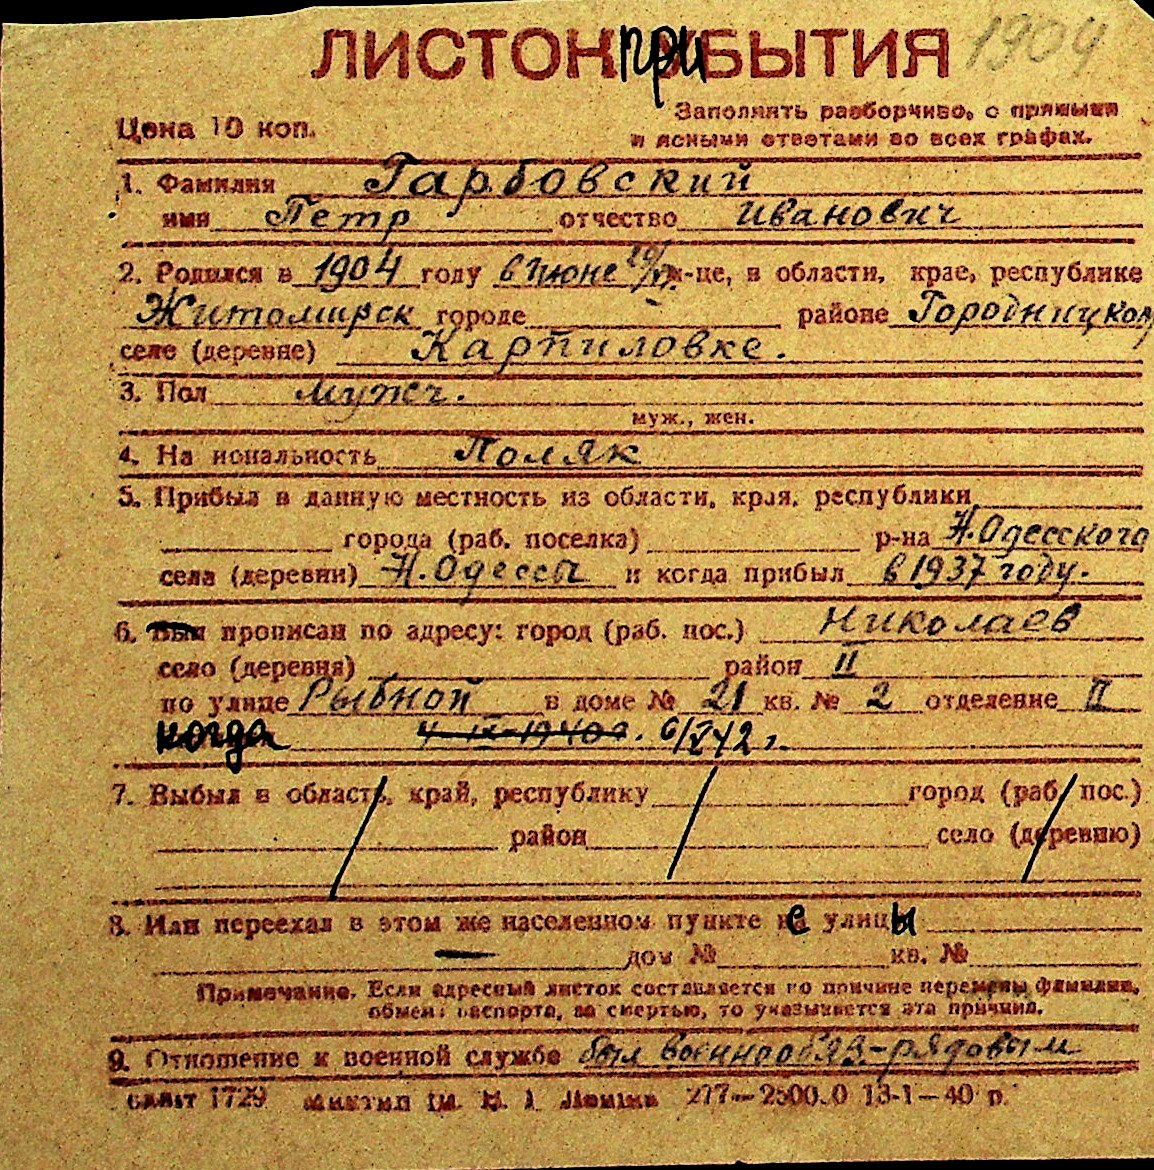 ЛИСТОК ПРИБЫТИЯ 1904
Цена 10 коп.
Заполнять разборчиво, с прямыми
и ясными ответами во всех графах.
1. Фамилия Гарбовский
имя Петр отчество Иванович
2. Родился в 1904 году в июне м-це, в области, крае, республике
Житомирск городе районе Городницком
селе (деревне) Карпиловке.
3. Пол мужч.
муж., жен.
4. На иональность Поляк
5. Прибыл в данную местность из области, края, республики
города (раб. поселка) р-на Н.Одесского
села (деревни) Н.Одессы и когда прибыл в 1937 году.
6. Был прописан по адресу: город (раб. пос.) Николаев
село (деревня) район II
по улице Рыбной в доме № 21 кв. № 2 отделение II
когда 6/X 42 г.
7. Выбыл в область, край, республику город (раб. пос.)
район село (деревню)
8. Или переехал в этом же населенном пункте с улицы
— дом № кв. №
Примечание. Если адресный листок составляется по причине перемены фамилии,
обмена паспорта, за смертью, то указывается эта причина.
9. Отношение к военной службе был военнообяз.-рядовым
1729 277—2500.0 13-1—40 р.